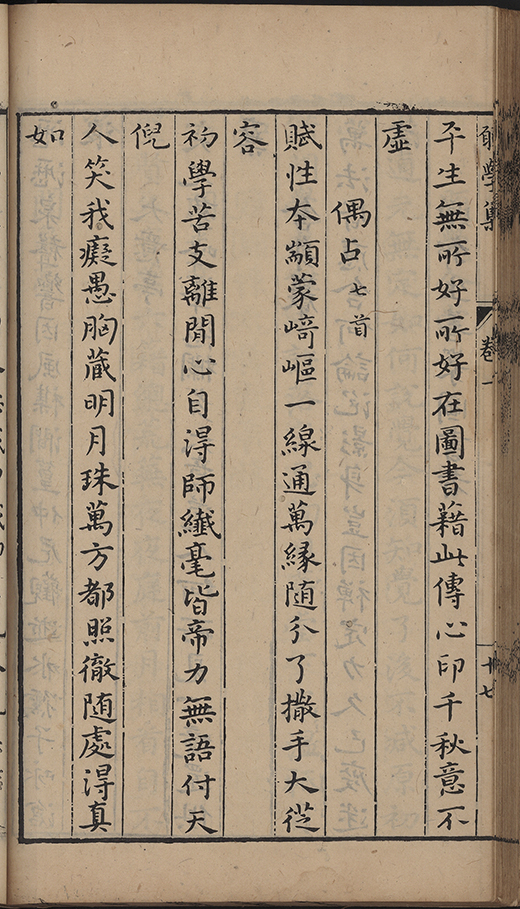 學集
卷一
十七
平生無所好所好在圖書藉此傳心印千秋意不
虛
偶占七首
賦性本顓蒙崎嶇一線通萬緣随分了撒手大從
容
初學苦支離閒心自得師纖毫皆帝力無語付天
倪
人笑我癡愚胸藏明月珠萬方都照徹随處得真
如